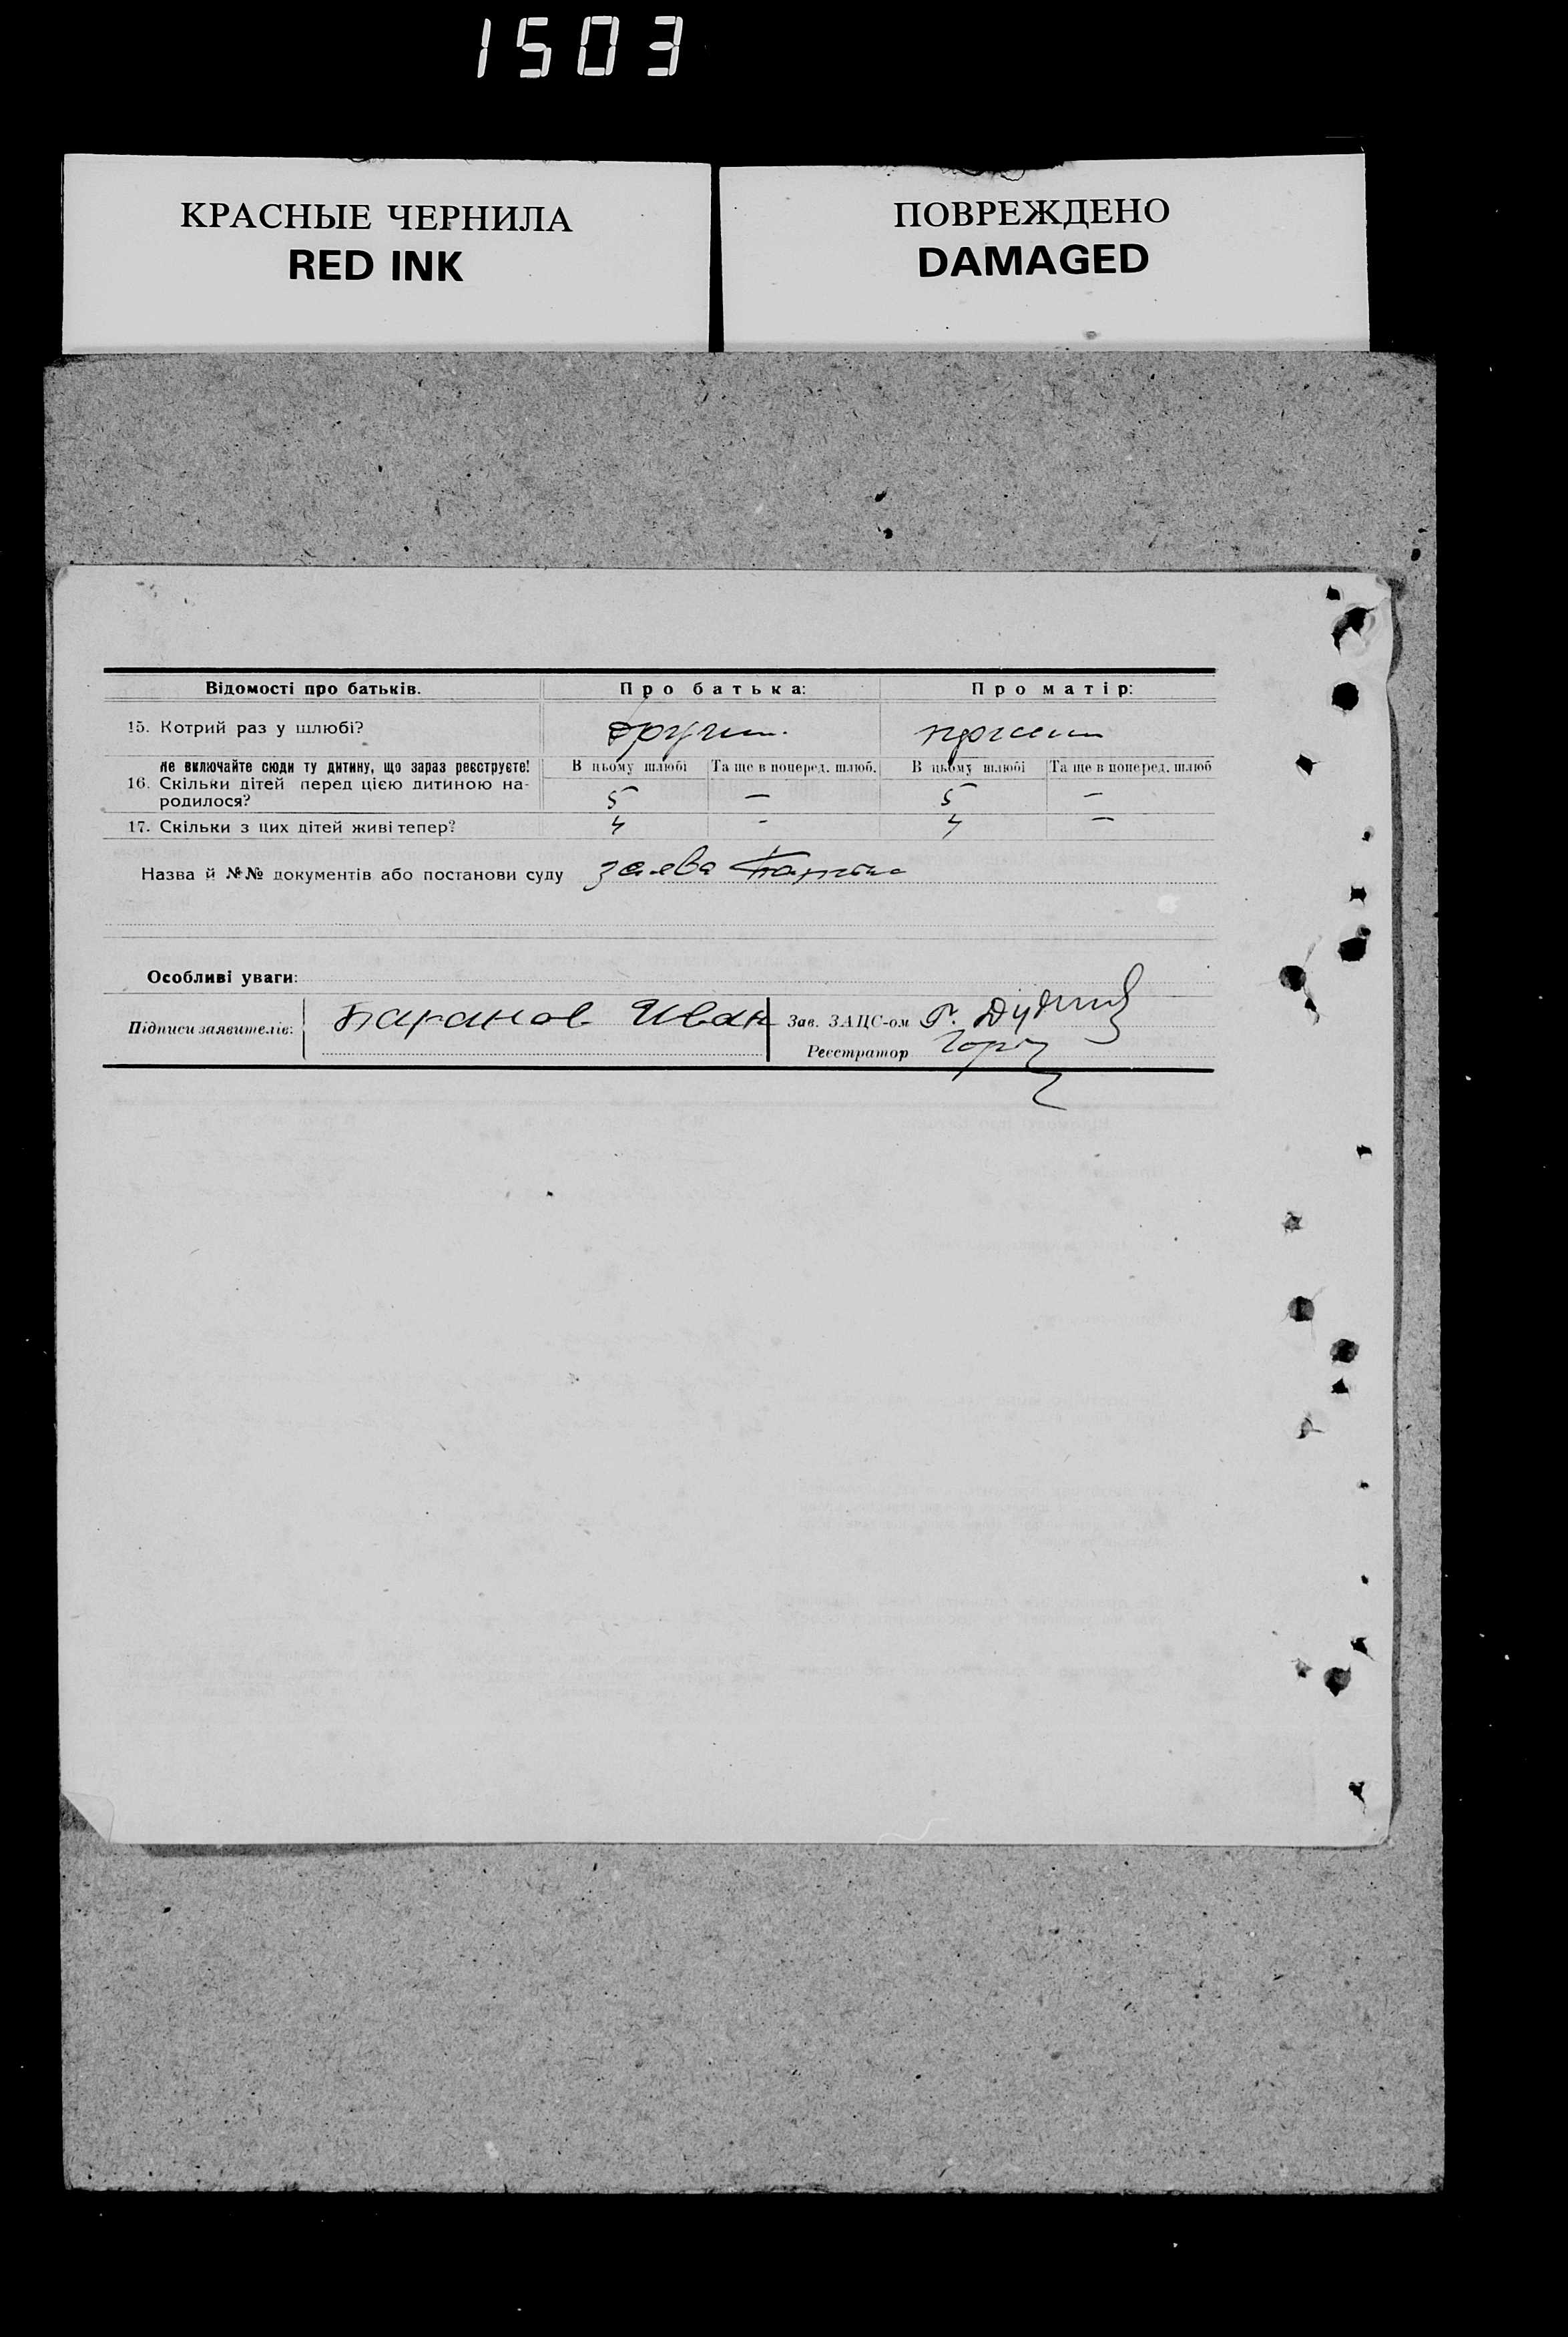 1503
КРАСНЫЕ ЧЕРНИЛА
RED INK
ПОВРЕЖДЕНО
DAMAGED
Відомості про батьків. Про батька: Про матір:
15. Котрий раз у шлюбі? другий
Не включайте сюди ту дитину, що зараз реєструєте! В цьому шлюбі Та ще в поперед. шлюб. В цьому шлюбі Та ще в поперед. шлюб
16. Скільки дітей перед цією дитиною на- 5 — 5 —
родилося?
17. Скільки з цих дітей живі тепер? 4 - 4 —
Назва й №№ документів або постанови суду заява
Особливі уваги:
Підписи заявителів: Баранов Иван Зав. ЗАЦС-ом
Реєстратор